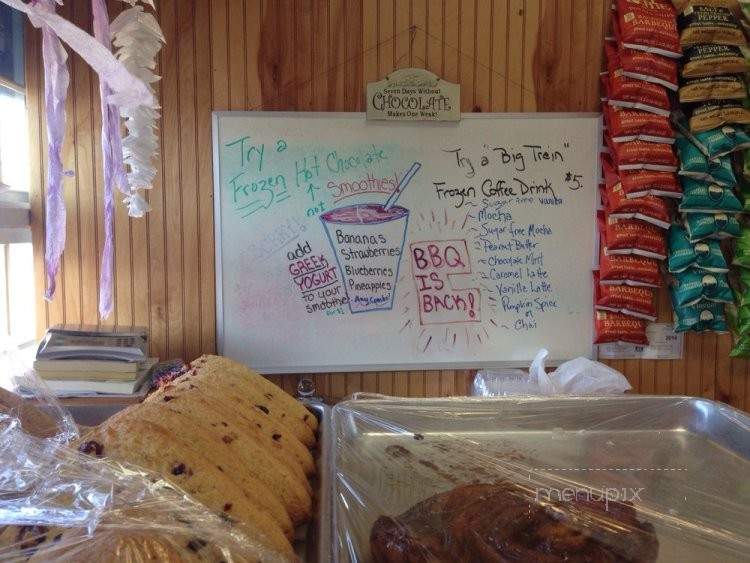 Seven Days Without
CHOCOLATE
Makes One Weak!
Try a
Frozen Hot Chocolate
↑
not
Smoothies!
Bananas
Strawberries
Blueberries
Pineapples
Any Combo!
add
GREEK
YOGURT
to your
smoothie
for $1
BBQ
IS
BACK!
Try a "Big Train"
Frozen Coffee Drink $5.
~ Sugar free vanilla
~ Mocha
~ Sugar free Mocha
~ Peanut Butter
~ Chocolate Mint
~ Caramel Latte
~ Vanilla Latte
~ Pumpkin Spice
or
~ Chai
BARBEQUE
BARBEQUE
BARBEQUE
BARBEQUE
PEPPER
PEPPER
PEPPER
2014
menupix